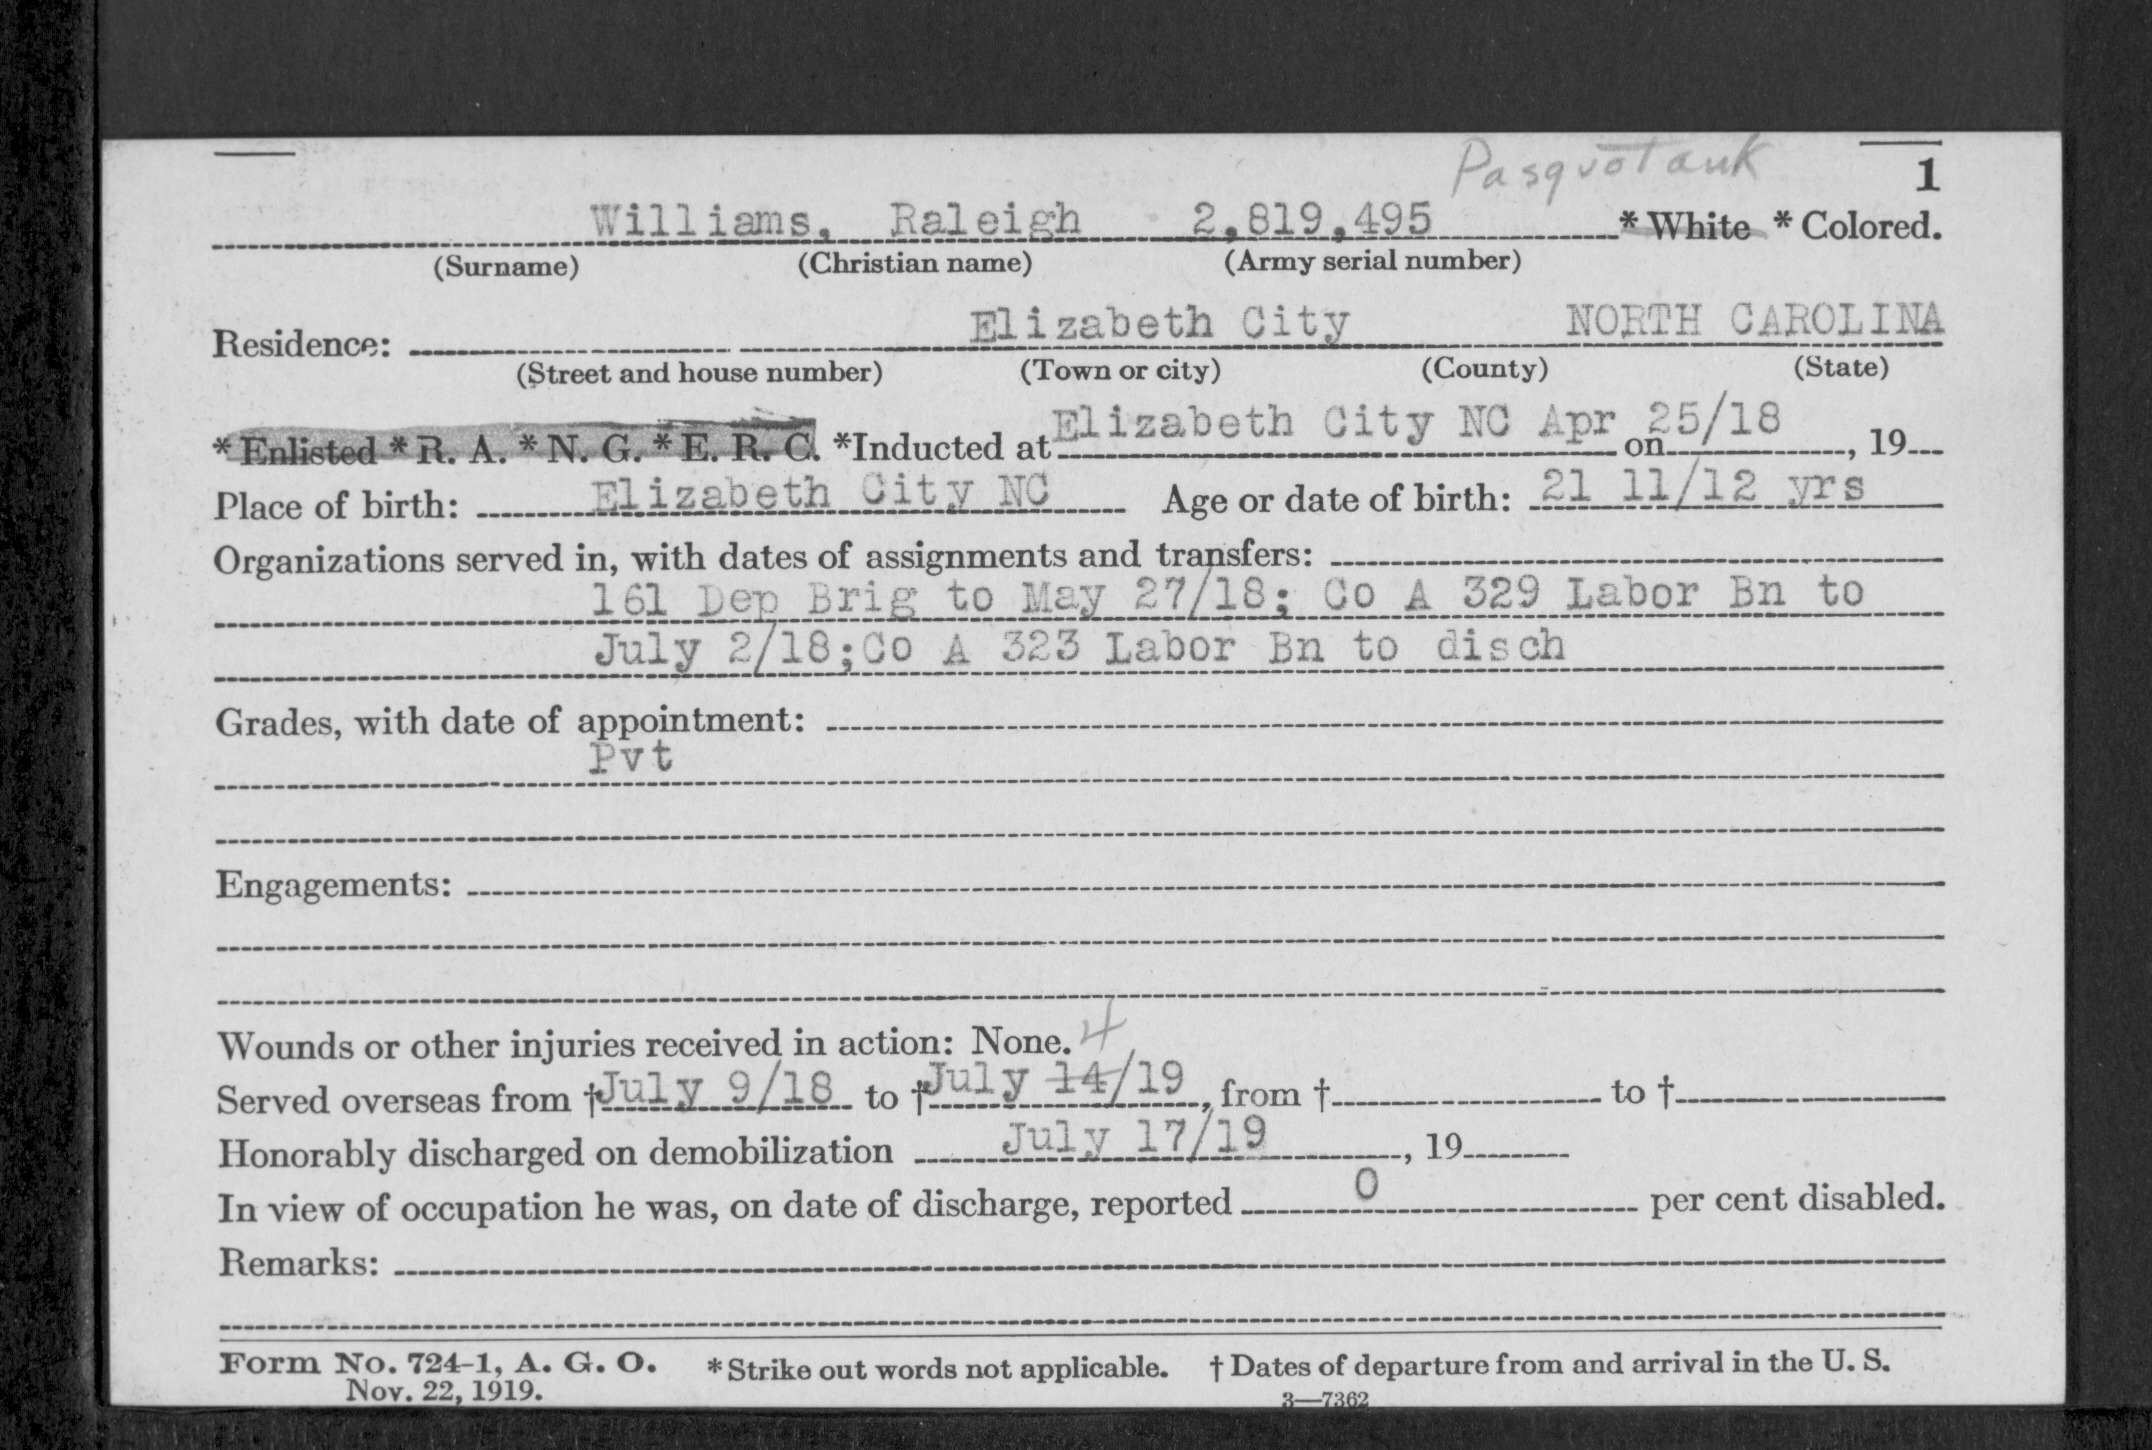 Pasquotank
1
Williams, Raleigh 2,819,495 * White * Colored.
(Surname) (Christian name) (Army serial number)
Elizabeth City NORTH CAROLINA
Residence:
(Street and house number) (Town or city) (County) (State)
* Enlisted * R. A. * N. G. * E. R. C. *Inducted at Elizabeth City NC Apr on 25/18, 19
Place of birth: Elizabeth City NC Age or date of birth: 21 11/12 yrs
Organizations served in, with dates of assignments and transfers:
161 Dep Brig to May 27/18; Co A 329 Labor Bn to
July 2/18;Co A 323 Labor Bn to disch
Grades, with date of appointment:
Pvt
Engagements:
Wounds or other injuries received in action: None. 4
Served overseas from †July 9/18 to †July 14/19, from † to †
Honorably discharged on demobilization July 17/19, 19
In view of occupation he was, on date of discharge, reported 0 per cent disabled.
Remarks:
Form No. 724-1, A. G. O. * Strike out words not applicable. † Dates of departure from and arrival in the U. S.
Nov. 22, 1919. 3—7362